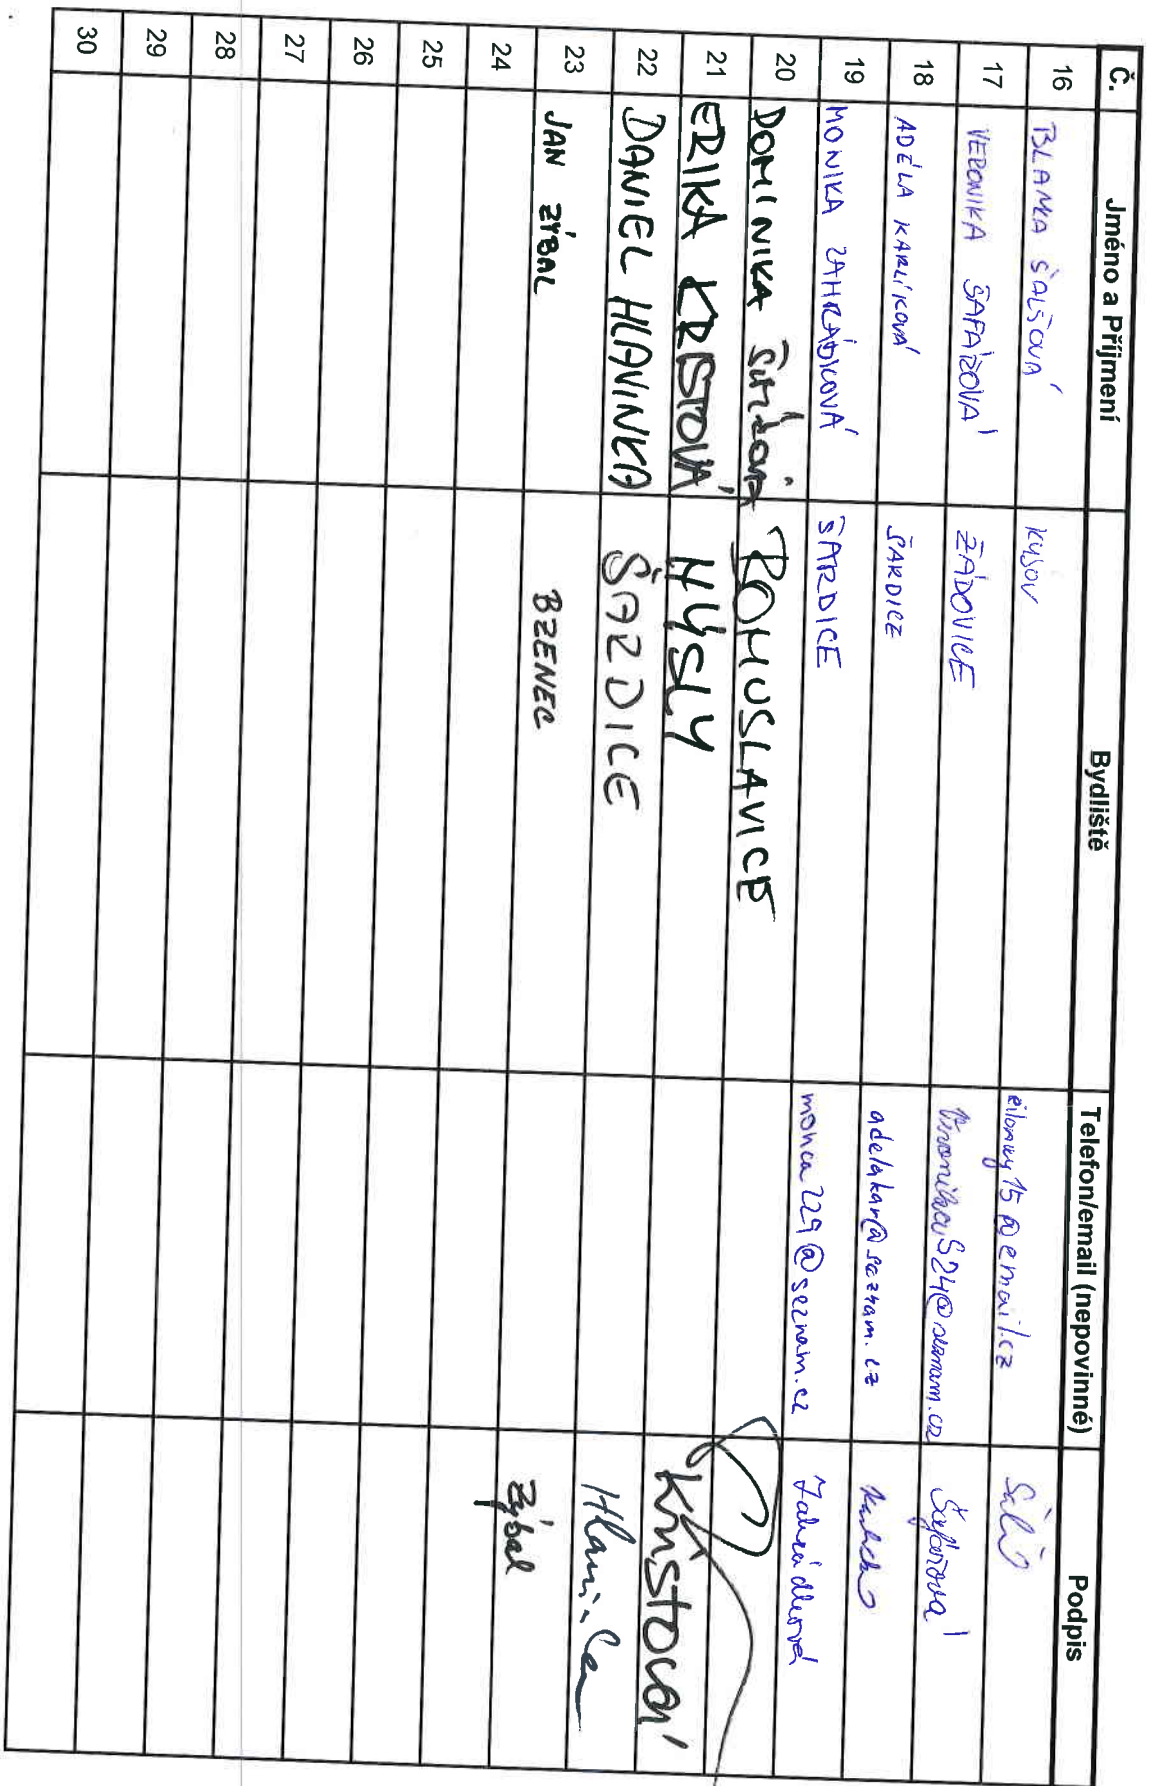 Č. Jméno a Příjmení Bydliště Telefon/email (nepovinné) Podpis
16 BLANKA ŠALŠOVÁ KYJOV @email.cz
17 VERONIKA ŠAFÁŘOVÁ ŽÁDOVICE VeronikaS24@seznam.cz Šafářová
18 ADÉLA KARLÍKOVÁ ŠARDICE adelakar@seznam.cz
19 MONIKA ZAHRÁDKOVÁ ŠARDICE monca229@seznam.cz Zahrádková
20 DOMINIKA
21 ERIKA KRISTOVÁ HÝSLY Kristová
22 DANIEL HLAVINKA ŠARDICE Hlavinka
23 JAN ZÝBAL BZENEC Zýbal
24
25
26
27
28
29
30